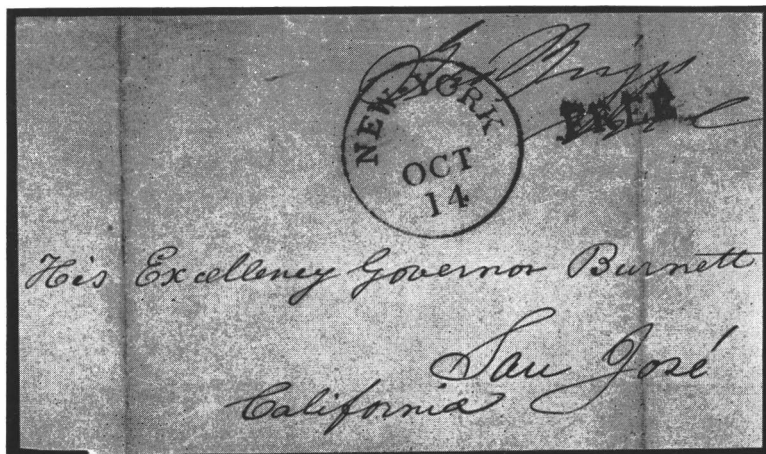 NEW-YORK
OCT
14
FREE
His Excellency Governor Burnett
San José
California